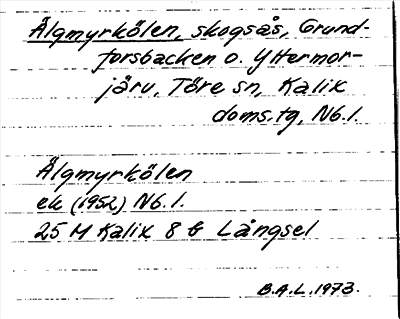 Älgmyrkölen, skogsås, Grund-
forsbacken o. Yttermor-
järv, Töre sn, Kalix
doms.tg, Nb.l.
Älgmyrkölen
ek (1952) Nb.l.
25 M Kalix 8 b Långsel
B.A.L. 1973.